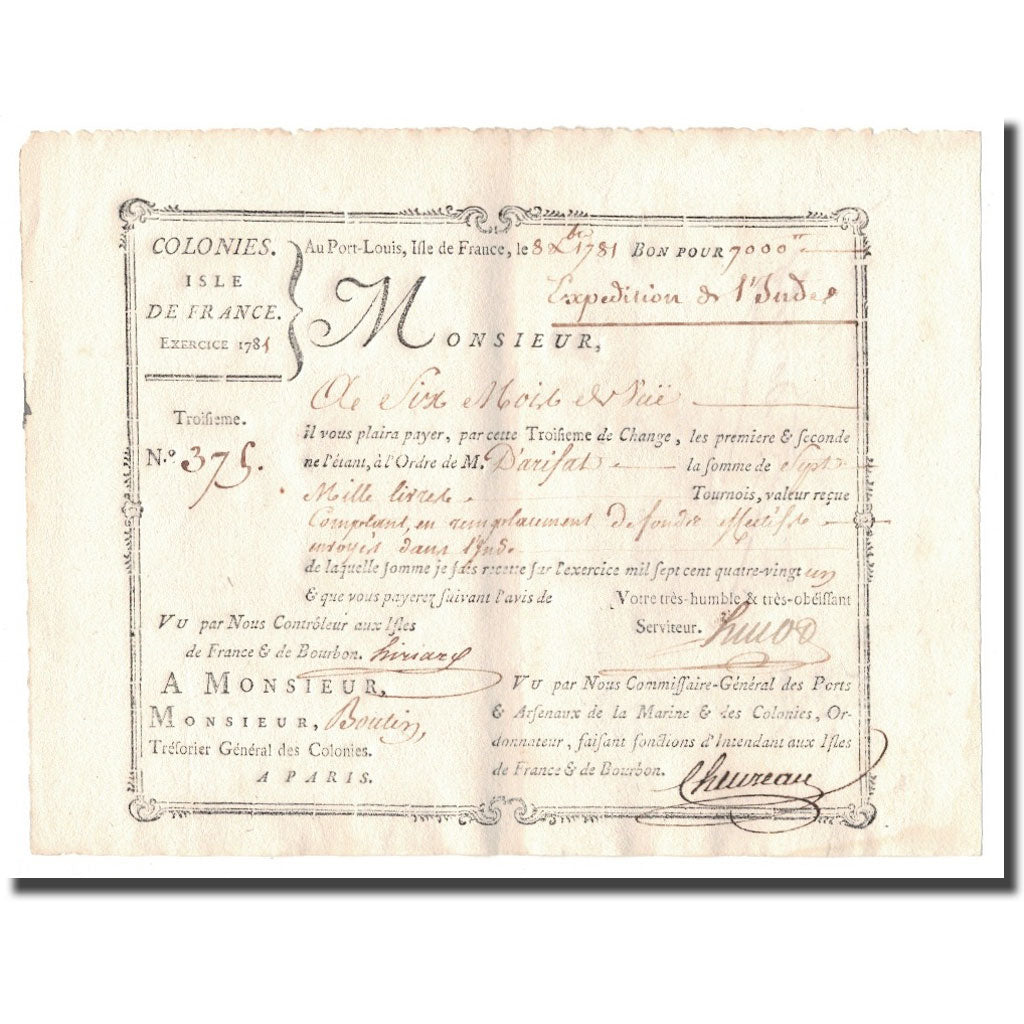 COLONIES.
ISLE
DE FRANCE.
EXERCICE 1781
Au Port-Louis, Isle de France, le 8 Xbre 1781 BON POUR 7000
Expedition de l'Inde
MONSIEUR,
Troisieme.
N.º 375.
A Six Mois de Vüe
il vous plaira payer, par cette Troisieme de Change, les premiere & seconde
ne l'étant, à l'Ordre de M. Darifat la somme de Sept
Mille livres Tournois, valeur reçue
Comptant, en remplacement de fonds effectifs
envoyés dans l'Inde
de laquelle somme je fais recette sur l'exercice mil sept cent quatre-vingt un
& que vous payerez suivant l'avis de Votre très-humble & très-obéissant
Serviteur.
VU par Nous Contrôleur aux Isles
de France & de Bourbon.
A MONSIEUR,
MONSIEUR, Boutin,
Trésorier Général des Colonies.
A PARIS.
VU par Nous Commissaire-Général des Ports
& Arsenaux de la Marine & des Colonies, Or-
donnateur, faisant fonctions d'Intendant aux Isles
de France & de Bourbon. Chevreau